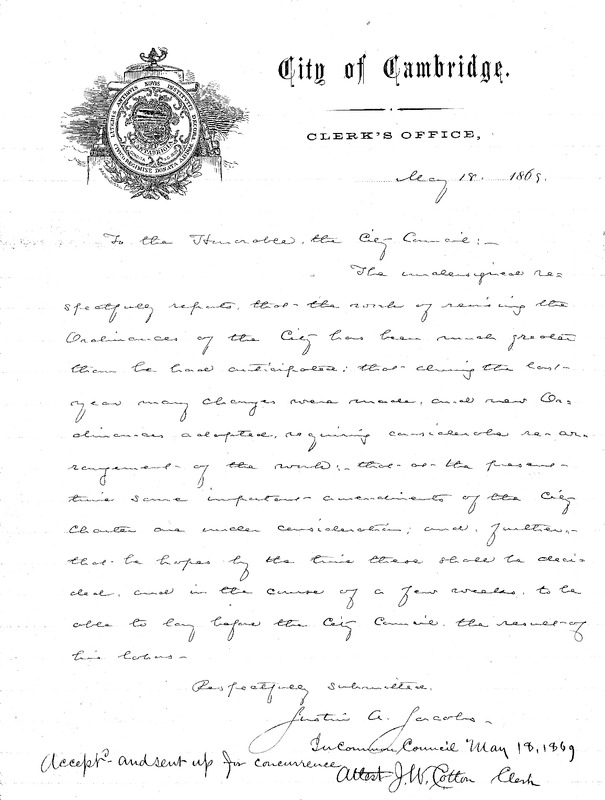 LITERIS ANTIQUIS NOVIS INSTITUTIS DECORA
CIVICO REGIMINE DONATA
City of Cambridge.
CLERK'S OFFICE,
May 18. 1869.
To the Honorable, the City Council:-
The undersigned re=
spectfully reports, that the work of revising the
Ordinances of the City has been much greater
than he had anticipated; that during the last
year many changes were made, and new Or=
dinances adopted, requiring considerable re-ar=
rangement of the work; that at the present
time some important amendments of the City
Charter are under consideration; and, further,
that he hopes by the time these shall be deci=
ded, and in the course of a few weeks, to be
able to lay before the City Council, the result of
his labors-
Respectfully submitted,
Justin A. Jacobs-
In Common Council May 18, 1869
Acceptd- and sent up for concurrence
Attest J. W. Cotton Clerk